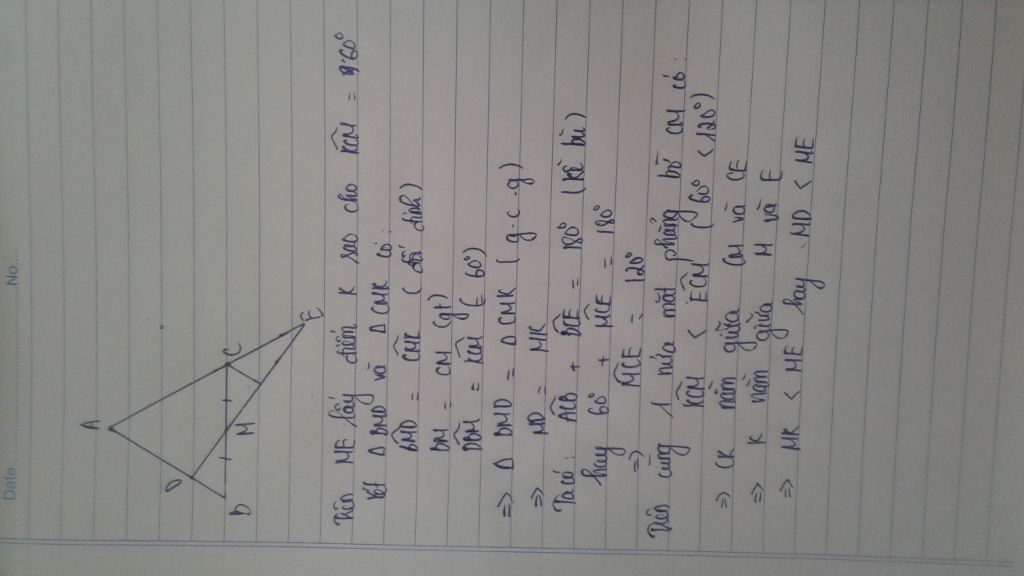 Date ............ No....
A
D
B
M
C
E
Trên ME lấy điểm K sao cho KCM = 60°
Xét Δ BMD và Δ CMK có:
BMD = CMK (đối đỉnh)
BM = CM (gt)
DBM = KCM (= 60°)
=> Δ BMD = Δ CMK (g.c.g)
=> MD = MK
Ta có: ACB + BCE = 180° (kề bù)
hay 60° + MCE = 180°
=> MCE = 120°
Trên cùng 1 nửa mặt phẳng bờ CM có:
KCM < ECM (60° < 120°)
=> CK nằm giữa CM và CE
=> K nằm giữa M và E
=> MK < ME hay MD < ME